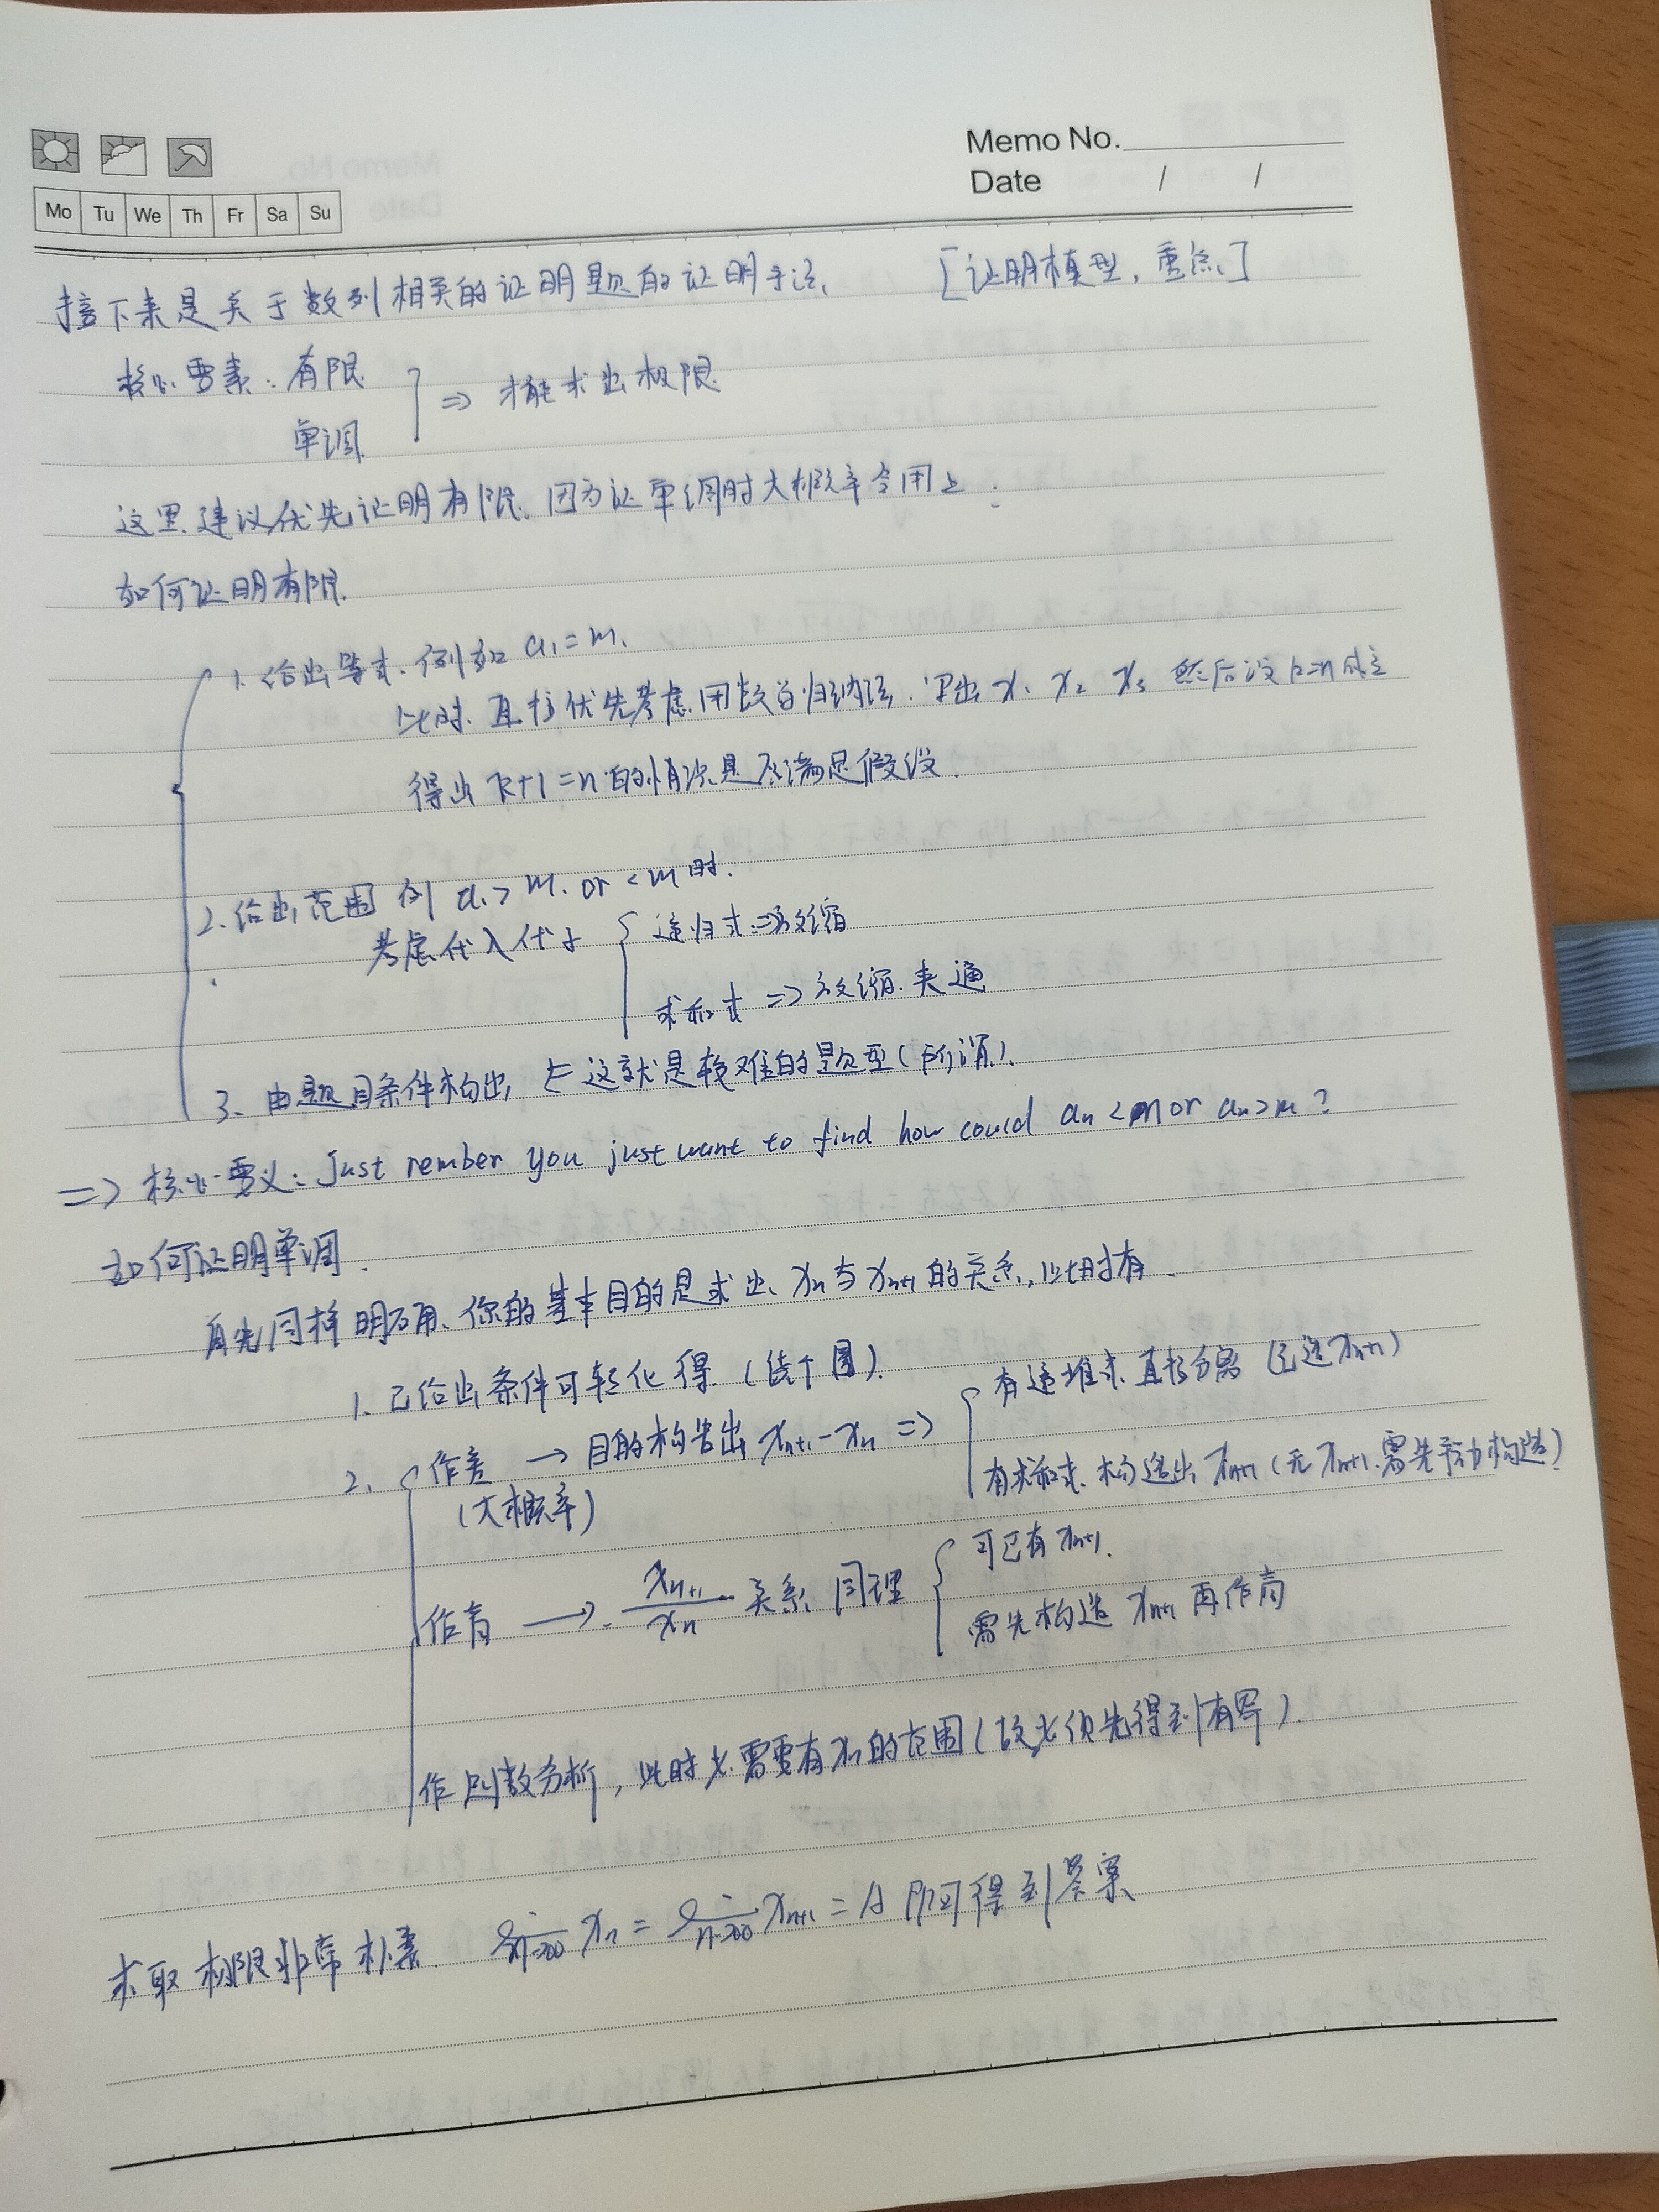 Memo No.
Date / /
Mo Tu We Th Fr Sa Su
接下来是关于数列相关的证明题的证明手法、 [证明模型,重点]
核心要素:有限
单调
⇒ 才能求出极限
这里建议优先证明有限、因为证单调时大概率会用上.
如何证明有限.
1. 给出等式、例如 a₁=m、
此时、直接优先考虑用数学归纳法、写出 x₁ x₂ x₃ 然后设 k=n 成立
得出 k+1=n 的情况是否满足假设.
2. 给出范围 例 a₁>m. or <m 时.
考虑代入代子 递归式⇒放缩
求和式 ⇒ 放缩. 夹逼
3、由题目条件构出, 这就是较难的题型(所谓).
⇒ 核心要义: Just rember you just want to find how could aₙ<m or aₙ>m ?
如何证明单调.
首先同样明确、你的基本目的是求出、xₙ与xₙ₊₁的关系,此时有.
1. 已给出条件可转化得.
2. 作差 → 目的构造出 xₙ₊₁-xₙ ⇒ 有递推式. 直接分离
(大概率) 有求和式. 构造出 xₙ₊₁ (无 xₙ₊₁. 需先手动构造)
作商 → xₙ₊₁/xₙ 关系. 同理 可已有 xₙ₊₁.
需先构造 xₙ₊₁ 再作商
作函数分析, 此时尤需要有xₙ的范围(故尤须先得到有界).
求取极限非常朴素. lim n→∞ xₙ = lim n→∞ xₙ₊₁ = A 即可得到答案